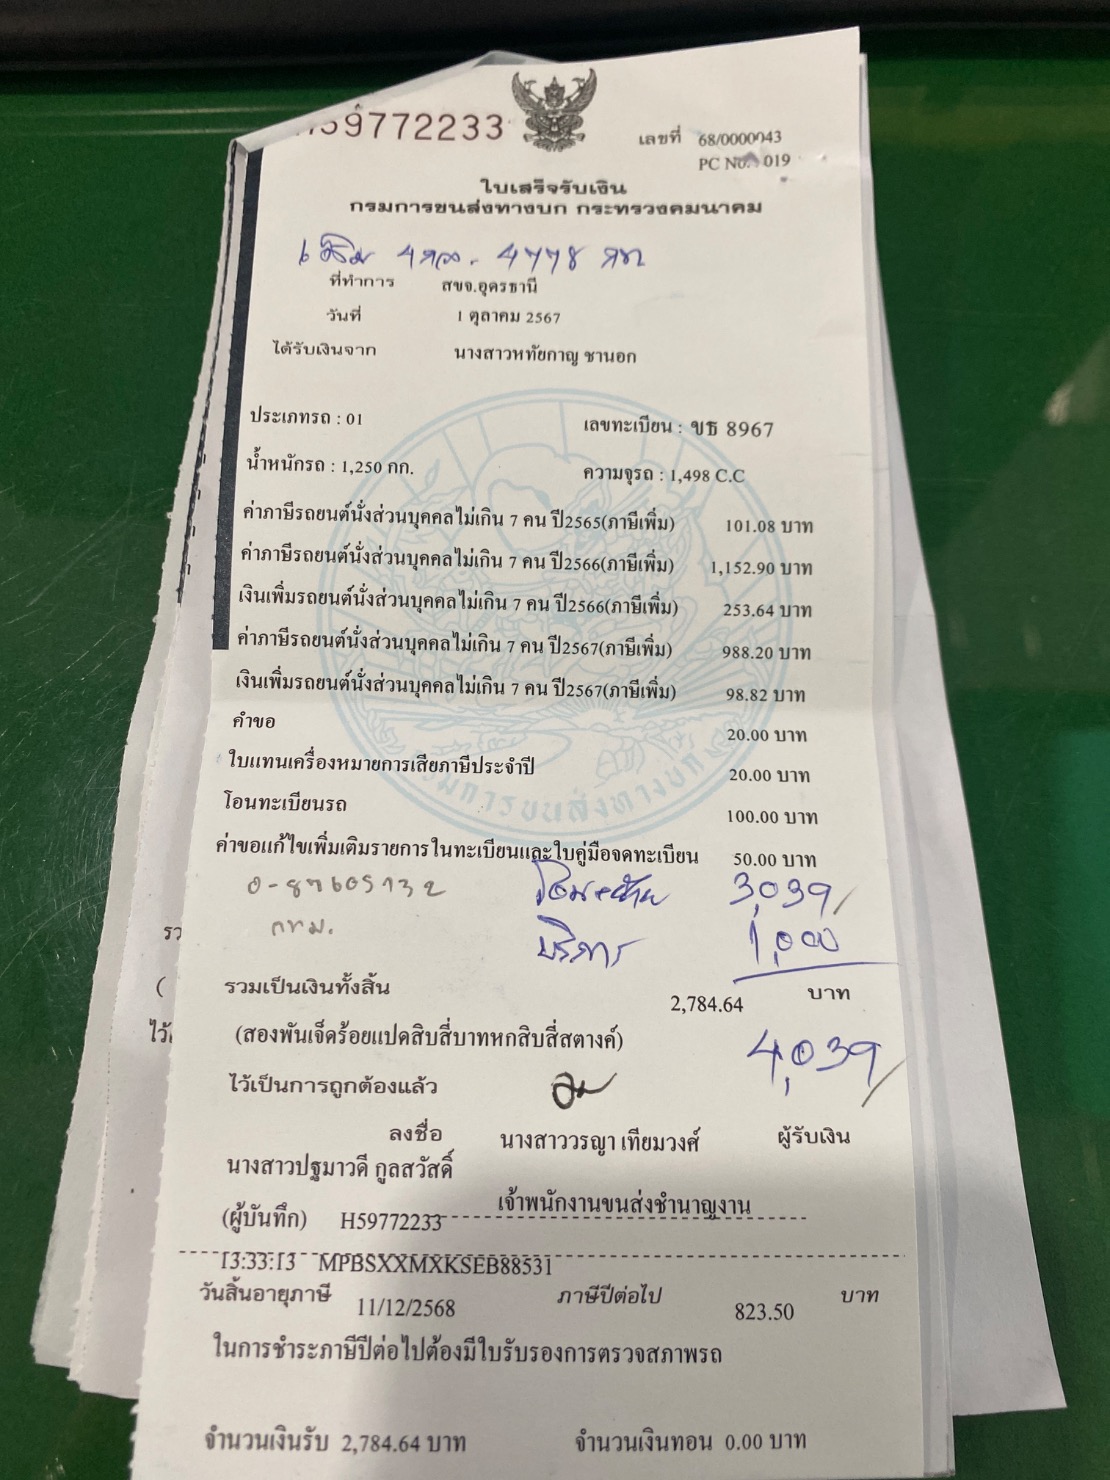 59772233
เลขที่ 68/0000043
PC No. 019
ใบเสร็จรับเงิน
กรมการขนส่งทางบก กระทรวงคมนาคม
4778 กท
ที่ทำการ สขจ.อุดรธานี
วันที่ 1 ตุลาคม 2567
ได้รับเงินจาก นางสาวหทัยกาญ ชานอก
ประเภทรถ : 01 เลขทะเบียน : ขธ 8967
น้ำหนักรถ : 1,250 กก. ความจุรถ : 1,498 C.C
ค่าภาษีรถยนต์นั่งส่วนบุคคลไม่เกิน 7 คน ปี2565(ภาษีเพิ่ม) 101.08 บาท
ค่าภาษีรถยนต์นั่งส่วนบุคคลไม่เกิน 7 คน ปี2566(ภาษีเพิ่ม) 1,152.90 บาท
เงินเพิ่มรถยนต์นั่งส่วนบุคคลไม่เกิน 7 คน ปี2566(ภาษีเพิ่ม) 253.64 บาท
ค่าภาษีรถยนต์นั่งส่วนบุคคลไม่เกิน 7 คน ปี2567(ภาษีเพิ่ม) 988.20 บาท
เงินเพิ่มรถยนต์นั่งส่วนบุคคลไม่เกิน 7 คน ปี2567(ภาษีเพิ่ม) 98.82 บาท
คำขอ 20.00 บาท
ใบแทนเครื่องหมายการเสียภาษีประจำปี 20.00 บาท
กรมการขนส่งทางบก
โอนทะเบียนรถ 100.00 บาท
ค่าขอแก้ไขเพิ่มเติมรายการในทะเบียนและใบคู่มือจดทะเบียน 50.00 บาท
โอน+ย้าย 3,039/
กทม. บริการ 1,000
รวมเป็นเงินทั้งสิ้น 2,784.64 บาท
(สองพันเจ็ดร้อยแปดสิบสี่บาทหกสิบสี่สตางค์) 4,039/
ไว้เป็นการถูกต้องแล้ว
ลงชื่อ นางสาววรญา เทียมวงศ์ ผู้รับเงิน
นางสาวปฐมาวดี กูลสวัสดิ์
เจ้าพนักงานขนส่งชำนาญงาน
(ผู้บันทึก) H59772233
13:33:13 MPBSXXMXKSEB88531
วันสิ้นอายุภาษี 11/12/2568 ภาษีปีต่อไป 823.50 บาท
ในการชำระภาษีปีต่อไปต้องมีใบรับรองการตรวจสภาพรถ
จำนวนเงินรับ 2,784.64 บาท จำนวนเงินทอน 0.00 บาท